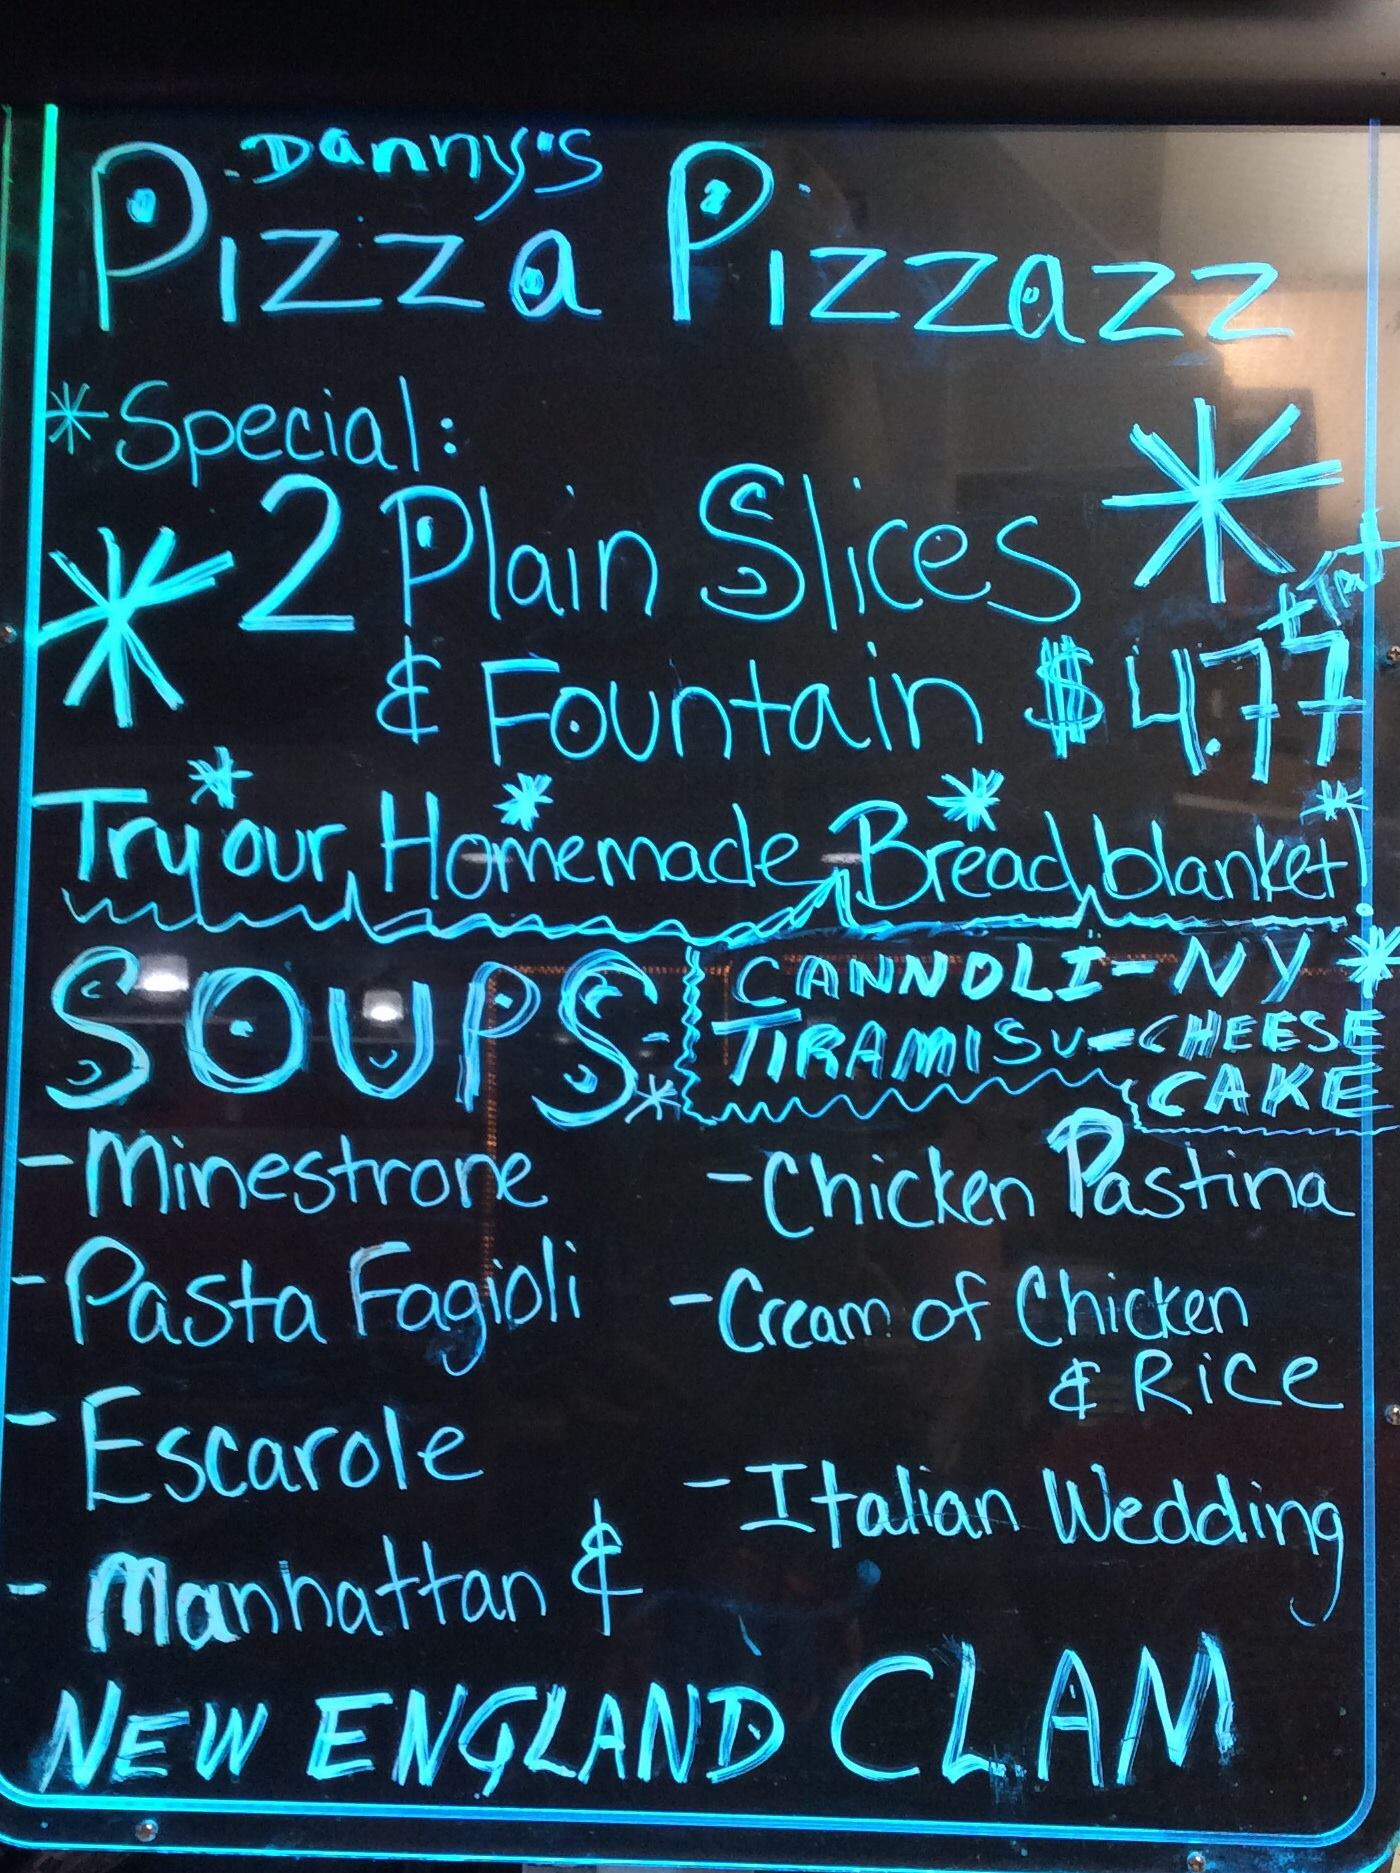 Danny's
Pizza Pizzazz
*Special:
2 Plain Slices
& Fountain $4.77
Try our Homemade Bread blanket!
SOUPS
CANNOLI-NY
TIRAMISU-CHEESE
CAKE
-Minestrone
-Pasta Fagioli
-Escarole
-Manhattan &
-Chicken Pastina
-Cream of Chicken
& Rice
-Italian Wedding
NEW ENGLAND CLAM